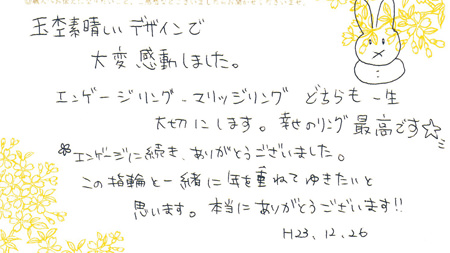 素晴しいデザインで
大変感動しました。
エンゲージリング・マリッジリング どちらも一生
大切にします。幸せのリング最高です☆
*エンゲージに続き、ありがとうございました。
この指輪と一緒に年を重ねてゆきたいと
思います。本当にありがとうございます!!
H23、12、26